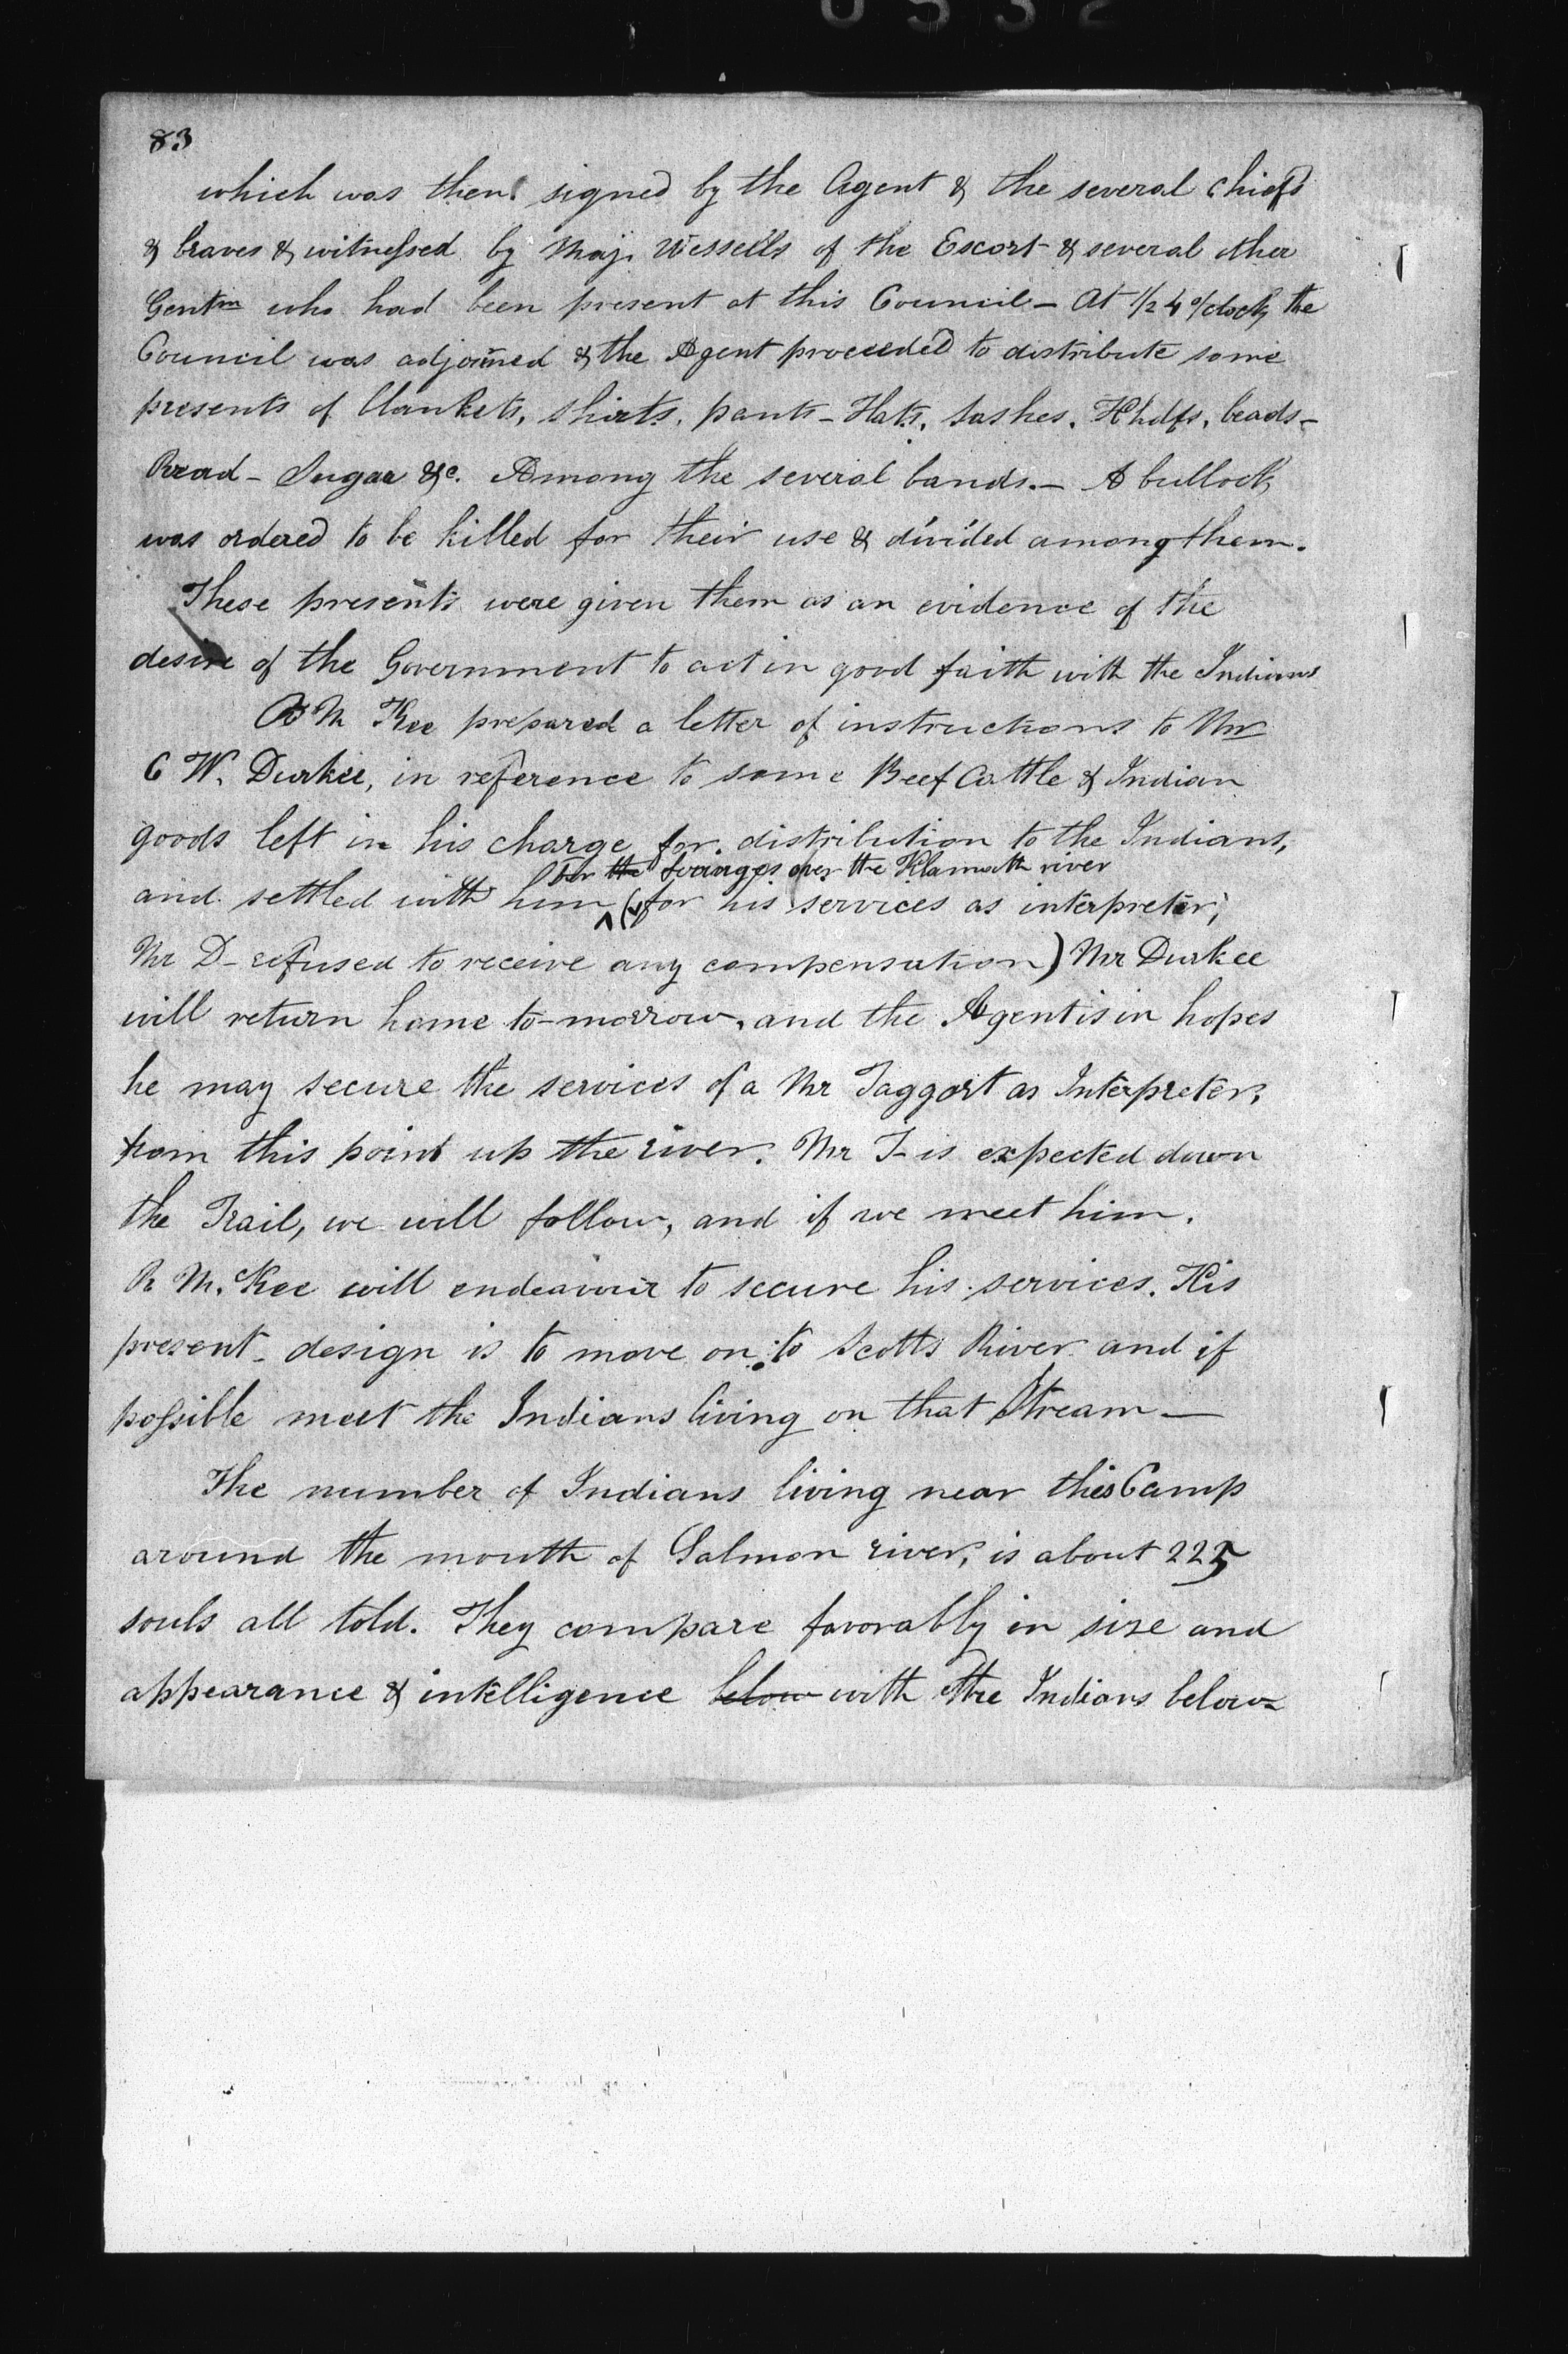 83
which was then signed by the Agent & the several Chiefs
& braves & witnessed by Maj. Wessells of the Escort & several other
Gentm who had been present at this Council - At 1/2 4 o/clock, the
Council was adjourned & the Agent proceeded to distribute some
presents of blankets, shirts, pants - Hats, sashes, Hhdfs, beads -
Bread - Sugar &c. Among the several bands. - A bullock
was ordered to be killed for their use & divided among them.
These presents were given them as an evidence of the
desire of the Government to act in good faith with the Indians
R M Kee prepared a letter of instructions to Mr
C W. Durkee, in reference to some Beef Cattle & Indian
goods left in his charge for distribution to the Indians,
for the ferriages over the Klamath river
and settled with him (for his services as interpreter,
Mr D - refused to receive any compensation) Mr Durkee
will return home to-morrow, and the Agent is in hopes
he may secure the services of a Mr Taggart as Interpreter,
from this point up the river. Mr T - is expected down
the Trail, we will follow, and if we meet him.
R Mc.Kee will endeavour to secure his services. His
present design is to move on to Scotts River and if
possible meet the Indians living on that Stream -
The number of Indians living near this Camp
around the mouth of Salmon river, is about 225
souls all told. They compare favorably in size and
appearance & intelligence below with the Indians below